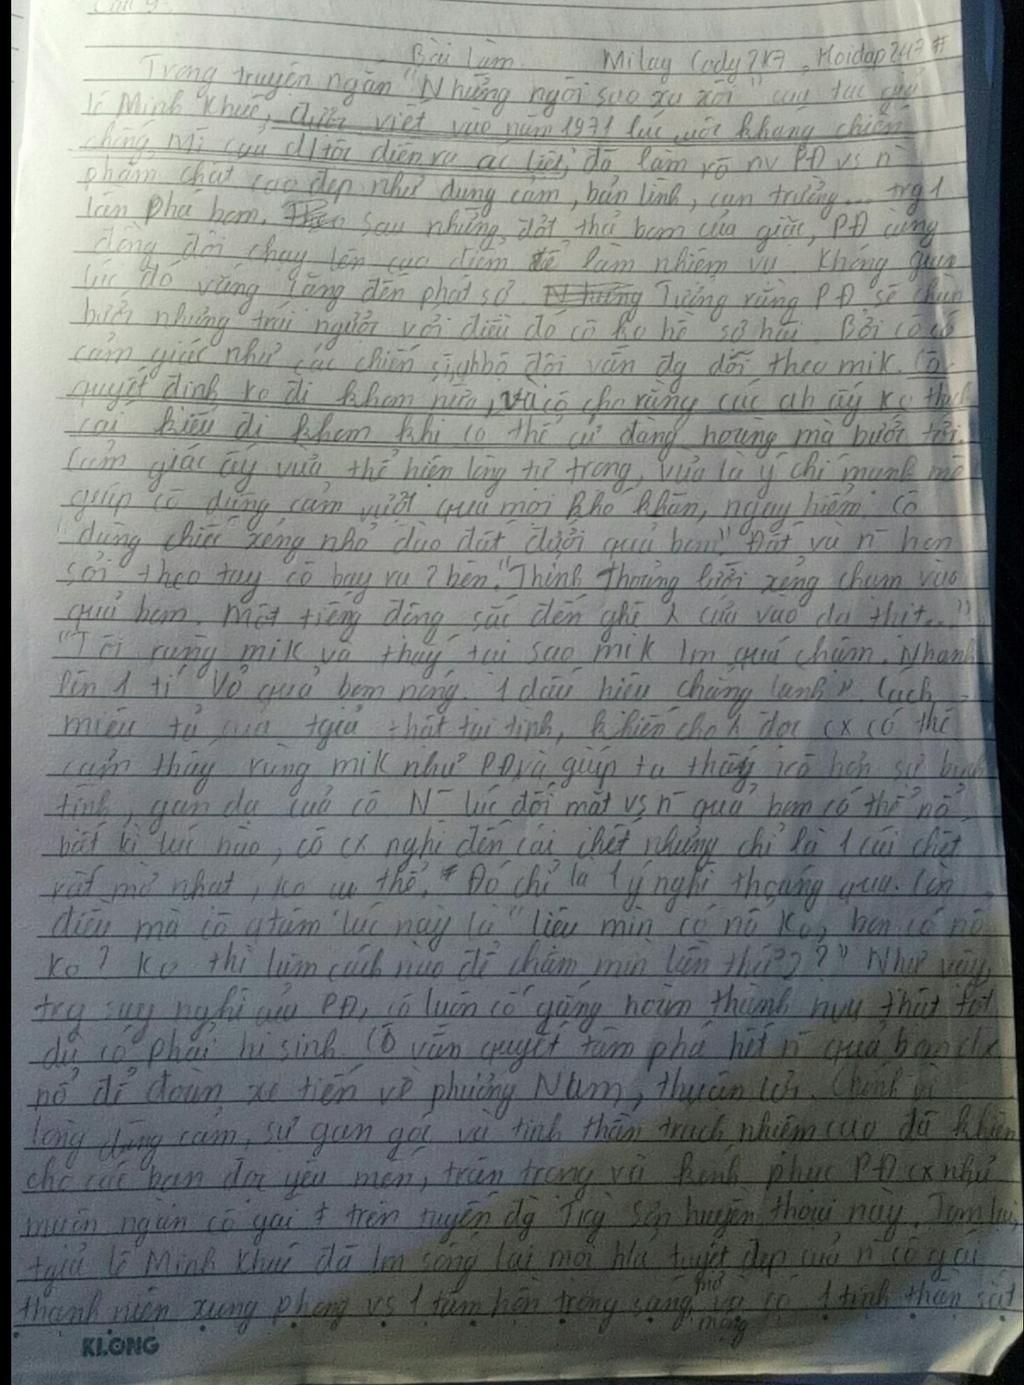 Bài làm. Milay Cody 2K7, Hoidap247 #
Trong truyện ngắn "Những ngôi sao xa xôi" của tác giả
Lê Minh Khuê, được viết vào năm 1971 lúc cuộc kháng chiến
chống Mĩ của d/tộc diễn ra ác liệt, đã làm rõ nv PĐ vs n~
phẩm chất cao đẹp như dũng cảm, bản lĩnh, can trường... trg 1
lần phá bom. Sau những đợt thả bom của giặc, PĐ cùng
đồng đội chạy lên cao điểm để làm nhiệm vụ. Không gian
lúc đó vắng lặng đến phát sợ. Tưởng rằng PĐ sẽ chùn
bước nhưng trái ngược với điều đó cô ko hề sợ hãi. Bởi cô có
cảm giác như các chiến sĩ bộ đội vẫn đg dõi theo mik. Cô
quyết định ko đi khom nữa, và cô cho rằng các ah ấy ko thích
cái kiểu đi khom khi có thể cứ đàng hoàng mà bước tới.
Cảm giác ấy vừa thể hiện lòng tự trọng, vừa là ý chí mạnh mẽ
giúp cô dũng cảm vượt qua mọi khó khăn, nguy hiểm. Cô
"dùng chiếc xẻng nhỏ đào đất dưới quả bom." Đất và n~ hòn
sỏi theo tay cô bay ra 2 bên. "Thỉnh thoảng lưỡi xẻng chạm vào
quả bom. Một tiếng động sắc đến ghê λ cứa vào da thịt..."
"Tôi rùng mik và thấy tại sao mik lm quá chậm. Nhanh
lên 1 tí Vỏ quả bom nóng. 1 dấu hiệu chẳng lành" Cách
miêu tả của tgiả thật tài tình, khiến cho λ đọc cx có thể
cảm thấy rùng mik như PĐ và giúp ta thấy rõ hơn sự bình
tĩnh, gan dạ của cô. N~ lúc đối mặt vs n~ quả bom có thể nổ
bất kì lúc nào, cô cx nghĩ đến cái chết nhưng chỉ là 1 cái chết
rất mờ nhạt, ko cụ thể. Đó chỉ là 1 ý nghĩ thoáng qua. Còn
điều mà cô qtâm lúc này là "liệu mìn có nổ ko, bom có nổ
ko? Ko thì làm cách nào để châm mìn lần thứ 2?" Như vậy,
trg suy nghĩ của PĐ, cô luôn cố gắng hoàn thành nvụ thật tốt
dù có phải hi sinh. Cô vẫn quyết tâm phá hết n~ quả bom chx
nổ để đoàn xe tiến về phương Nam, thuận lợi. Chính vì
lòng dũng cảm, sự gan góc và tinh thần trách nhiệm cao đã khiến
cho các bạn đọc yêu mến, trân trọng và kính phục PĐ cx như
muôn ngàn cô gái # trên tuyến đg Trg Sơn huyền thoại này. Tóm lại,
tgiả Lê Minh Khuê đã lm sống lại mọi h/a tuyệt đẹp của n~ cô gái
thanh niên xung phong vs 1 tâm hồn trong sáng, mơ mộng và có 1 tinh thần sắt
KLONG